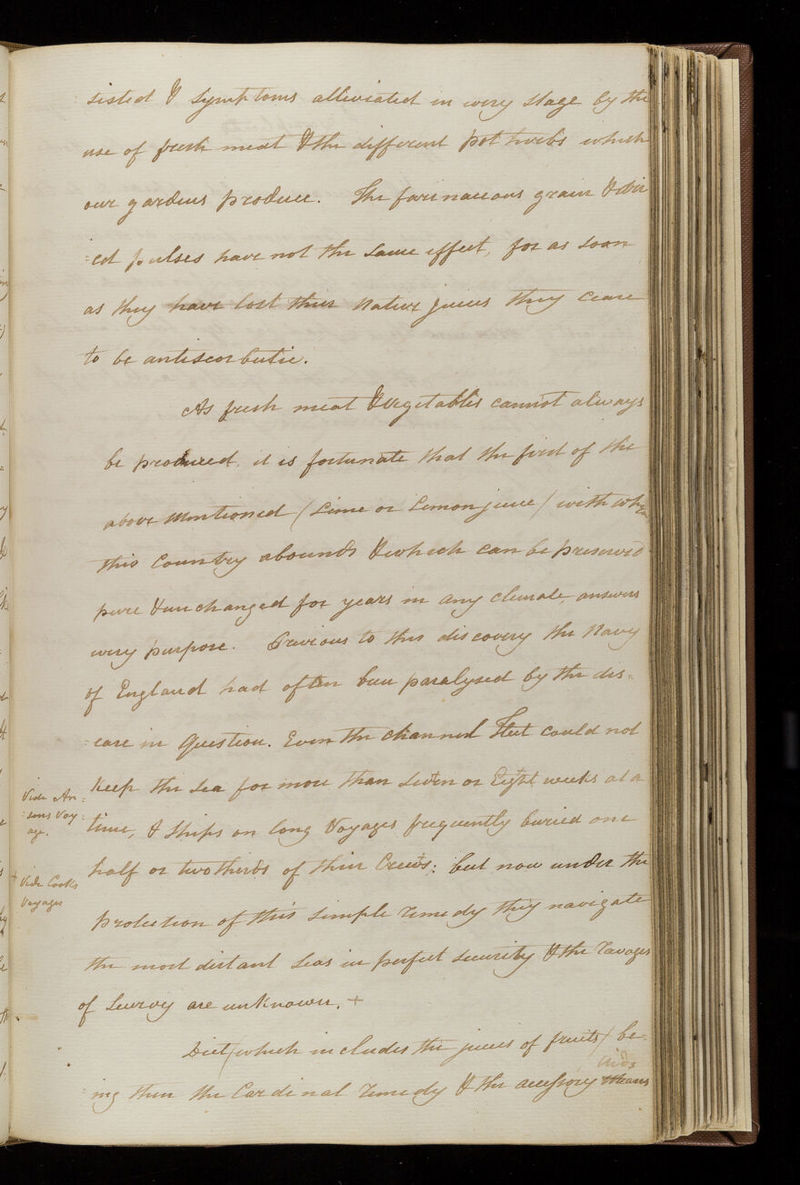 sisted & symptoms alleviated in every stage by the
use of fresh meat & the different pot herbs which
our gardens produce. The farinaceous grain & dri
=ed pulses have not the same effect, for as soon
as they have lost their native juices they cease
to be antiscorbutic.
As fresh meat & vegetables cannot always
be produced, it is fortunate that the first of the
above mentioned (Lime or Lemon juice) with whch
this Country abounds & which can be preserved
pure & unchanged for years in any climate, answers
every purpose. Previous to this discovery the Navy
of England had often been paralysed by the dis=
=ease in Question. Even the channel Fleet could not
keep the Sea for more than Seven or Eight weeks at a
Vide An=
=sons Voy=
age.
time, & Ships on long Voyages frequently buried one
half or two thirds of their Crews: but now under the
+ Vide Cooks
Voyages
protection of this simple remedy they navigate
the most distant Seas in perfect security & the ravages
of Scurvy are unknown. +
Diet (which includes the juices of fruits) be=
aids
=ing then the Cardinal remedy & the accessory means